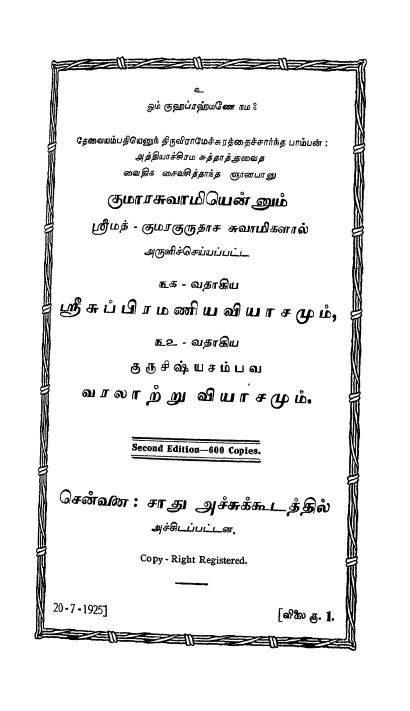 உ
ஓம் குஹப்ரஹ்மணே நம :
தேவையம்பதியெனுந் திருவிராமேச்சுரத்தைச்சார்ந்த பாம்பன் :
அத்தியாச்சிரம சுத்தாத்துவைத
வைதிக சைவசித்தாந்த ஞானபாநு
குமாரசுவாமியென்னும்
ஸ்ரீமத் - குமரகுருதாச சுவாமிகளால்
அருளிச்செய்யப்பட்ட
௩௧ - வதாகிய
ஸ்ரீசுப்பிரமணியவியாசமும்,
௩௨ - வதாகிய
குருசிஷ்யசம்பவ
வரலாற்று வியாசமும்.
Second Edition—600 Copies.
சென்னை : சாது அச்சுக்கூடத்தில்
அச்சிடப்பட்டன.
Copy - Right Registered.
20 - 7 - 1925]
[விலை ரூ. 1.